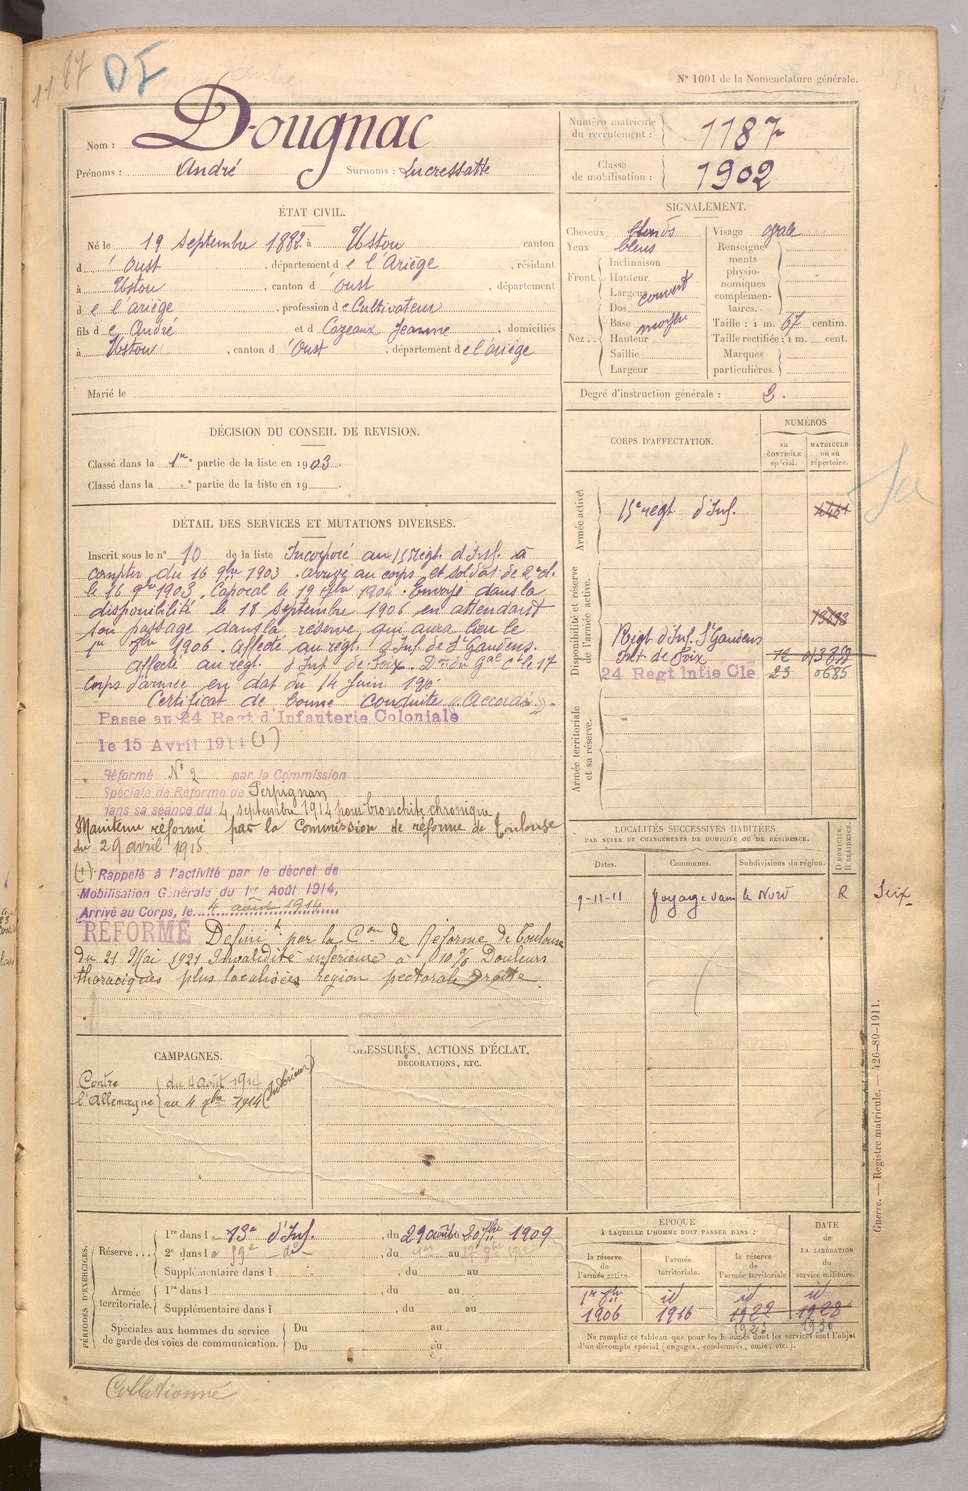 1187 DF
N° 1001 de la Nomenclature générale.
Nom : Dougnac
Prénoms : André Surnoms : Lucressatte
Numéro matricule du recrutement : 1187
Classe de mobilisation : 1902
ÉTAT CIVIL.
Né le 19 Septembre 1882 à Ustou canton
d' Oust, département de l'Ariège, résidant
à Ustou, canton d' Oust, département
de l'ariège, profession de Cultivateur
fils de André et de Cazeaux Jeanne, domiciliés
à Ustou, canton d' Oust, département de l'ariège
Marié le
SIGNALEMENT.
Cheveux blonds Visage ovale
Yeux bleus
Front Inclinaison
Hauteur
Largeur couvert
Nez Dos
Base moyen
Hauteur
Saillie
Largeur
Renseignements physionomiques complémentaires.
Taille : 1 m. 67 centim.
Taille rectifiée : 1 m. cent.
Marques particulières.
Degré d'instruction générale : 2.
DÉCISION DU CONSEIL DE REVISION.
Classé dans la 1re partie de la liste en 1903.
Classé dans la e partie de la liste en 19
DÉTAIL DES SERVICES ET MUTATIONS DIVERSES.
Inscrit sous le n° 10 de la liste Incorporé au 15 régt. d'Inf. à
compter du 16 9bre 1903. arrivé au corps et soldat de 2e cl.
le 16 9bre 1903. Caporal le 19 1904. Envoyé dans la
disponibilité le 18 Septembre 1906 en attendant
son passage dans la réserve qui aura lieu le
1er 1906. Affecté au régt. d'Inf. de St Gaudens.
affecté au régt. d'Inf. de Foix. 17
corps d'armée en dat du 14 Juin 190
Certificat de bonne conduite « Accordé ».
Passe au 24 Regt d'Infanterie Coloniale
le 15 Avril 1914 (1)
Réformé N° 2 par la Commission
Spéciale de Réforme de Perpignan
dans sa séance du 4 septembre 1914 pour bronchite chronique
Maintenu réformé par la Commission de réforme de Toulouse
du 29 avril 1915
(1) Rappelé à l'activité par le décret de
Mobilisation Générale du 1er Août 1914,
Arrivé au Corps, le 4 août 1914
RÉFORMÉ Définif par la Con de Réforme de Toulouse
du 21 Mai 1921 Invalidité inférieure à 10 % Douleurs
thoraciques plus localisées région pectorale Droite.
CORPS D'AFFECTATION.
NUMÉROS
au CONTRÔLE spécial.
MATRICULE ou au répertoire.
Armée active.
15e régt d'Inf.
Disponibilité et réserve de l'armée active.
Régt d'Inf. St Gaudens
Inf. de Foix 12
24 Regt Infie Cle 23 0685
Armée territoriale et sa réserve.
LOCALITÉS SUCCESSIVES HABITÉES
PAR SUITE DE CHANGEMENTS DE DOMICILE OU DE RÉSIDENCE.
Dates. Communes. Subdivisions de région. D DOMICILE. R RÉSIDENCE.
9-11-11 Voyage dans le Nord R Seix
CAMPAGNES.
Contre l'Allemagne du 4 août 1914
au 4 7bre 1914 (Intérieur)
BLESSURES, ACTIONS D'ÉCLAT,
DÉCORATIONS, ETC.
PÉRIODES D'EXERCICES.
Réserve... 1re dans le 13e d'Inf., du 29 août au 20 7bre 1909
2e dans le 59e do, du au
Supplémentaire dans l , du au
Armée territoriale. 1re dans l , du au
Supplémentaire dans l , du au
Spéciales aux hommes du service de garde des voies de communication. Du au
Du au
ÉPOQUE
À LAQUELLE L'HOMME DOIT PASSER DANS :
la réserve de l'armée active. l'armée territoriale. la réserve de l'armée territoriale
DATE DE LA LIBÉRATION du service militaire.
1er id id id
1906 1916 1922 1928
Ne remplir ce tableau que pour les hommes dont les services font l'objet
d'un décompte spécial (engagés, condamnés, omis, etc.).
Guerre. — Registre matricule. — 426-89-1911.
Collationné